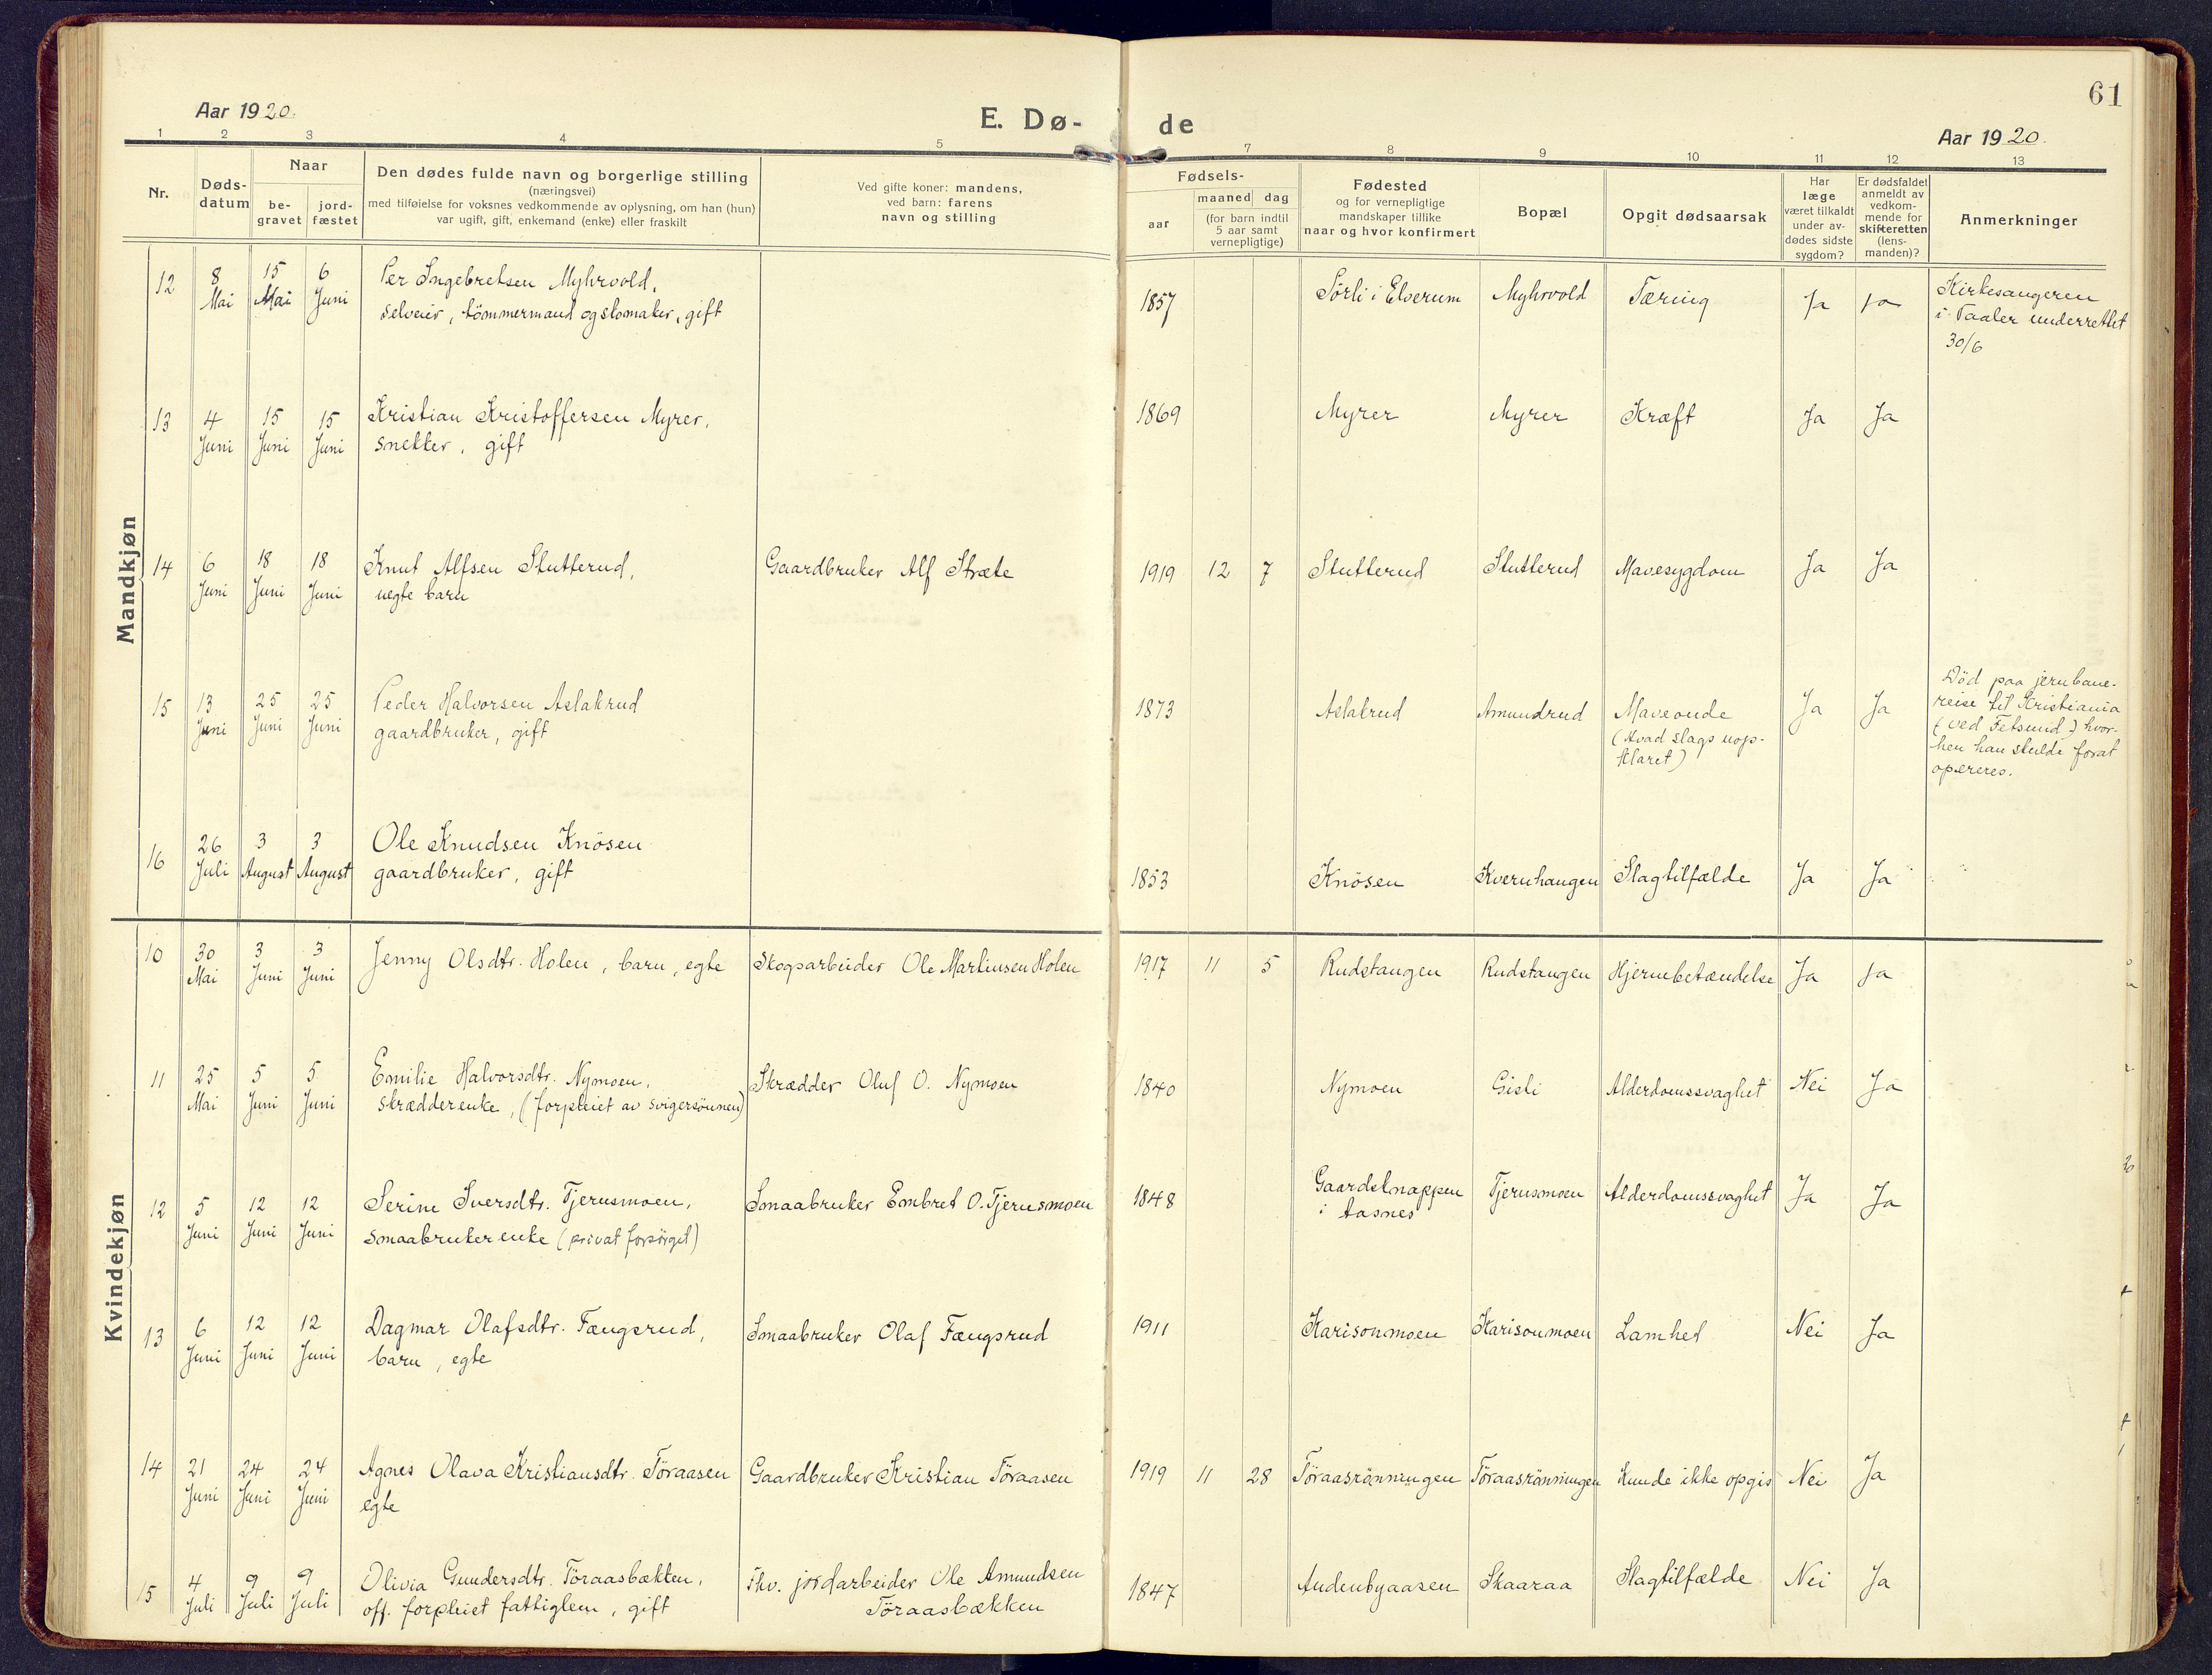 61
Aar 1920.
E. Dø-
de
Aar 1920.
1 2 3 4 5 7 8 9 10 11 12 13
Nr.
Døds-
datum
Naar
be-
gravet
jord-
fæstet
Den dødes fulde navn og borgerlige stilling
(næringsvei)
med tilføielse for voksnes vedkommende av oplysning, om han (hun)
var ugift, gift, enkemand (enke) eller fraskilt
Ved gifte koner: mandens,
ved barn: farens
navn og stilling
Fødsels-
aar
maaned dag
(for barn indtil
5 aar samt
vernepligtige)
Fødested
og for vernepligtige
mandskaper tillike
naar og hvor konfirmert
Bopæl
Opgit dødsaarsak
Har
læge
været tilkaldt
under av-
dødes sidste
sygdom?
Er dødsfaldet
anmeldt av
vedkom-
mende for
skifteretten
(lens-
manden)?
Anmerkninger
Mandkjøn
12
8
Mai
15
Mai
6
Juni
Per Ingebretsen Myhrvold,
selveier, tömmermand og skomaker, gift
1857
Sörli i Elverum
Myhrvold
Tæring
Ja
Ja
Kirkesangeren
i Vaaler underrettet
30/6
13
4
Juni
15
Juni
15
Juni
Kristian Kristoffersen Myrer,
snekker, gift
1869
Myrer
Myrer
Kræft
Ja
Ja
14
6
Juni
18
Juni
18
Juni
Knut Alfsen Stutterud,
uegte barn
Gaardbruker Alf Stræte
1919 12 7
Stutterud
Stutterud
Mavesygdom
Ja
Ja
15
13
Juni
25
Juni
25
Juni
Peder Halvorsen Aslakrud
gaardbruker, gift
1873
Aslakrud
Amundrud
Maveonde
(Hvad slags uop-
klaret)
Ja
Ja
Död paa jernbane-
reise til Kristiania
(ved Fetsund) hvor-
hen han skulde forat
opereres.
16
26
Juli
3
August
3
August
Ole Knudsen Knösen
gaardbruker, gift
1853
Knösen
Kvernhaugen
Slagtilfælde
Ja
Ja
Kvindekjøn
10
30
Mai
3
Juni
3
Juni
Jenny Olsdtr. Holen, barn, egte
Skogsarbeider Ole Martinsen Holen
1917 11 5
Rudstangen
Rudstangen
Hjernebetændelse
Ja
Ja
11
25
Mai
5
Juni
5
Juni
Emilie Halvorsdtr. Nymoen,
skrædderenke, (forpleiet av svigersönnen)
Skrædder Oluf O. Nymoen
1840
Nymoen
Gisli
Alderdomssvaghet
Nei
Ja
12
5
Juni
12
Juni
12
Juni
Serine Iversdtr. Tjernsmoen,
smaabrukerenke (privat forsörget)
Smaabruker Embret O. Tjernsmoen
1848
Gaardsknappen
i Aasnes
Tjernsmoen
Alderdomssvaghet
Ja
Ja
13
6
Juni
12
Juni
12
Juni
Dagmar Olafsdtr. Fængsrud,
barn, egte
Smaabruker Olaf Fængsrud
1911
Karisonmoen
Karisonmoen
Lamhet
Nei
Ja
14
21
Juni
24
Juni
24
Juni
Agnes Olava Kristiansdtr. Töraasen
egte
Gaardbruker Kristian Töraasen
1919 11 28
Töraasrönningen
Töraasrönningen
Kunde ikke opgis
Nei
Ja
15
4
Juli
9
Juli
9
Juli
Olivia Gundersdtr. Töraasbækken,
off. forpleiet fattiglem, gift
Fhv. jordarbeider Ole Amundsen
Töraasbækken
1847
Audenbyaasen
Skaaraa
Slagtilfælde
Nei
Ja